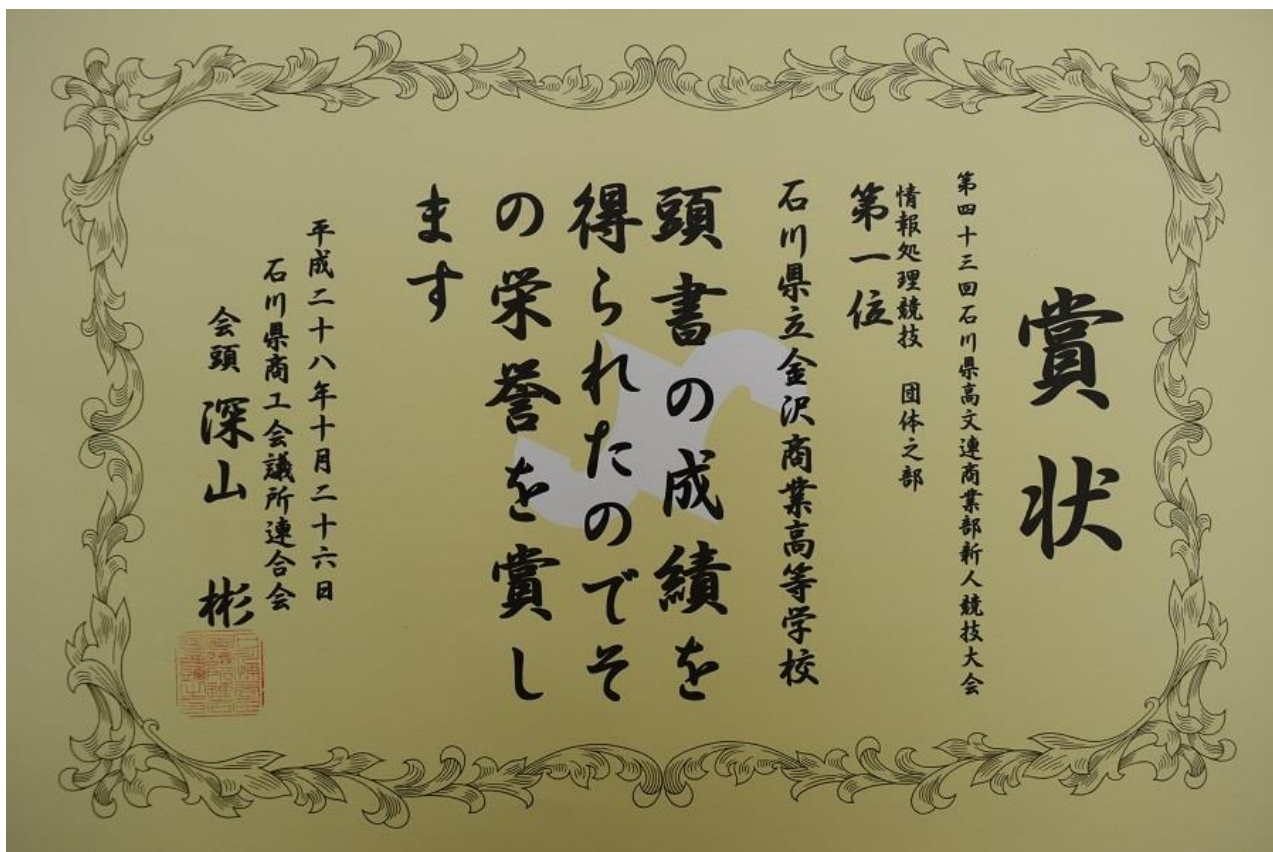 賞状
第四十三回石川県高文連商業部新人競技大会
情報処理競技 団体之部
第一位
石川県立金沢商業高等学校
頭書の成績を
得られたのでそ
の栄誉を賞し
ます
平成二十八年十月二十六日
石川県商工会議所連合会
会頭 深山 彬